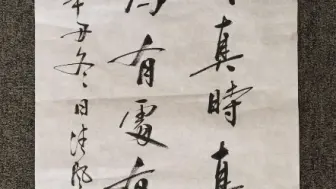 真時真
為有處有
辛丑冬日